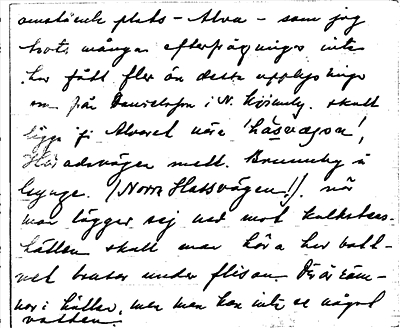 omstörd plats - Alva - som jag
trots många efterfrågningar inte
har fått fler än dessa upplysningar
om från Danielsson i N. Möckleby. skall
ligga på Alvaret nära "Låsvägson",
Häradsvägen mell. Brunneby o
Lynge. (Norra Hattsvägen!). när
man lägger sej ned mot kalkstens-
hällen skall man höra hur vatt-
net brusar under flisan. Där är räm-
nor i hällen, men man kan inte se något
vatten.